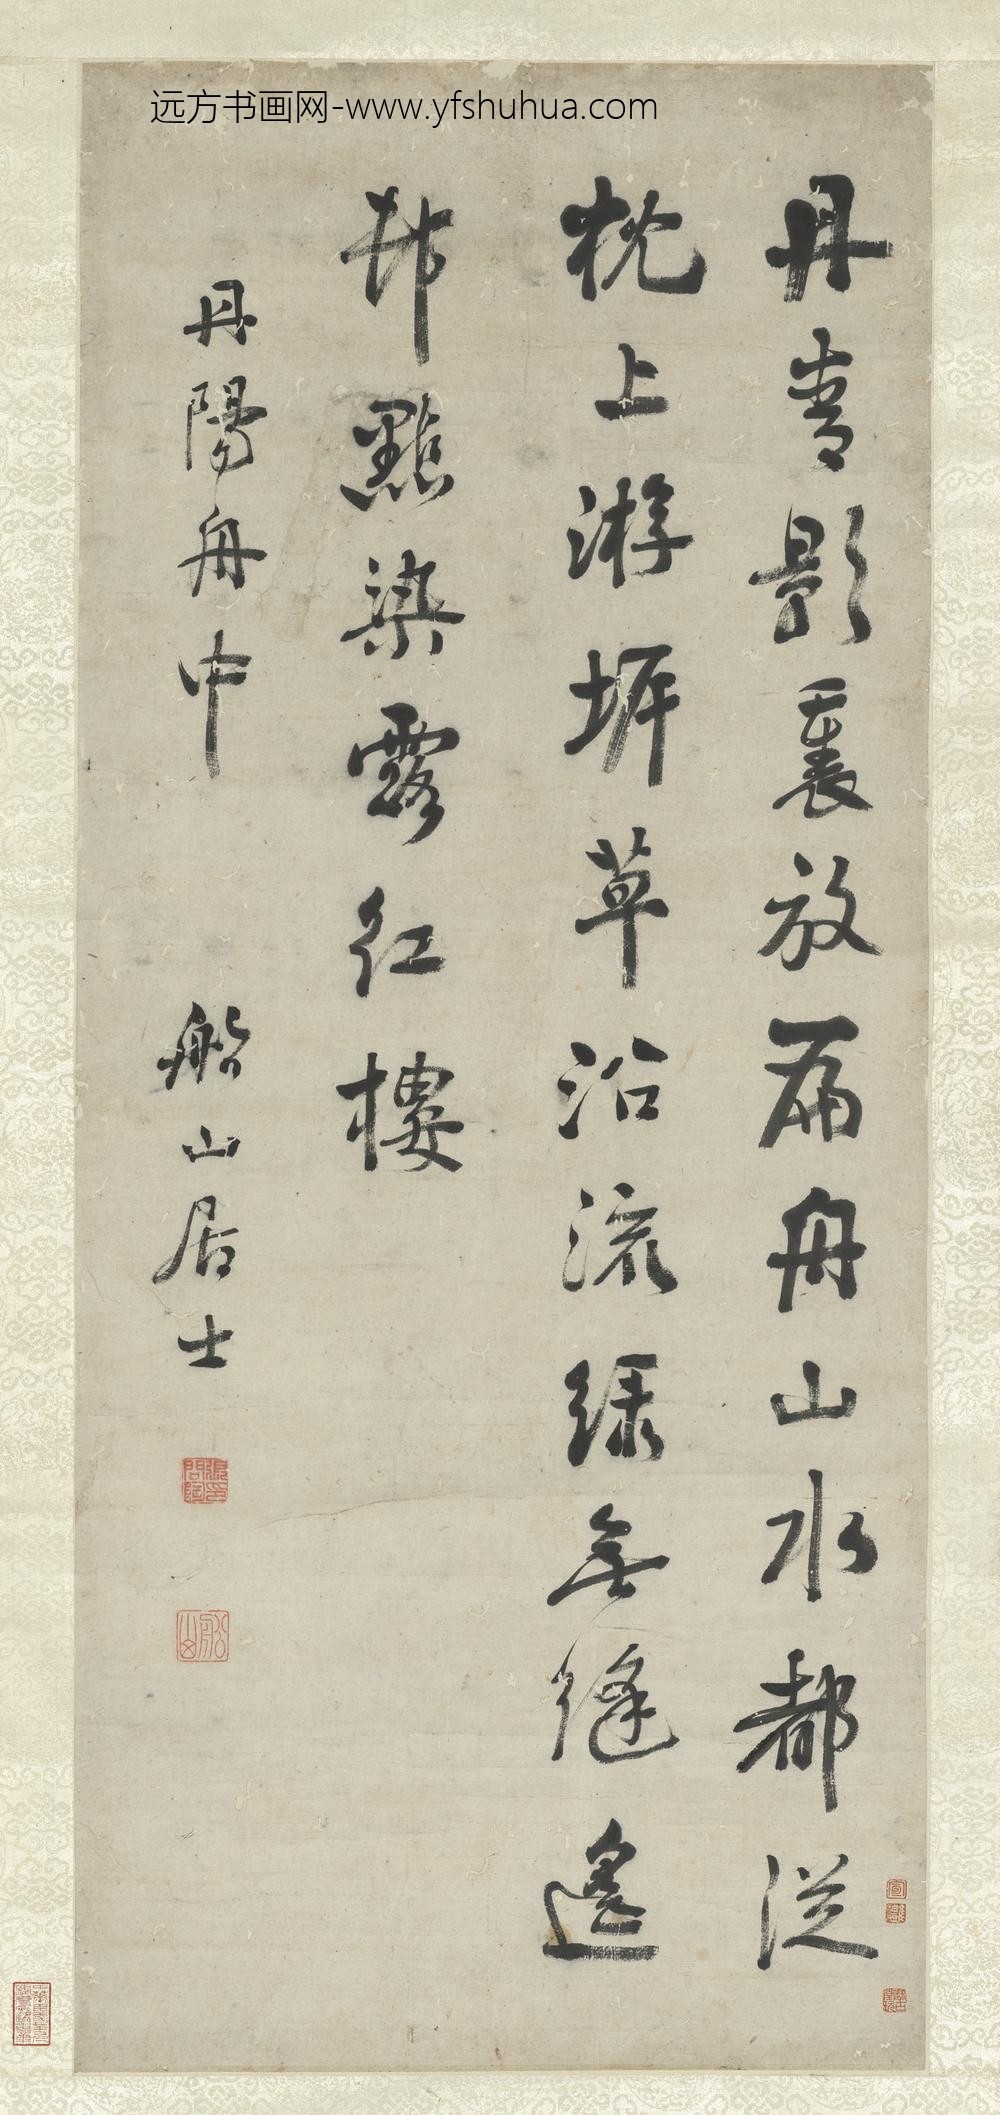 远方书画网-www.yfshuhua.com
丹青影裏放扁舟山水都從
枕上游坼草沿流綠無縫遙
邨點染露紅樓
丹陽舟中
船山居士
張問陶印
船山